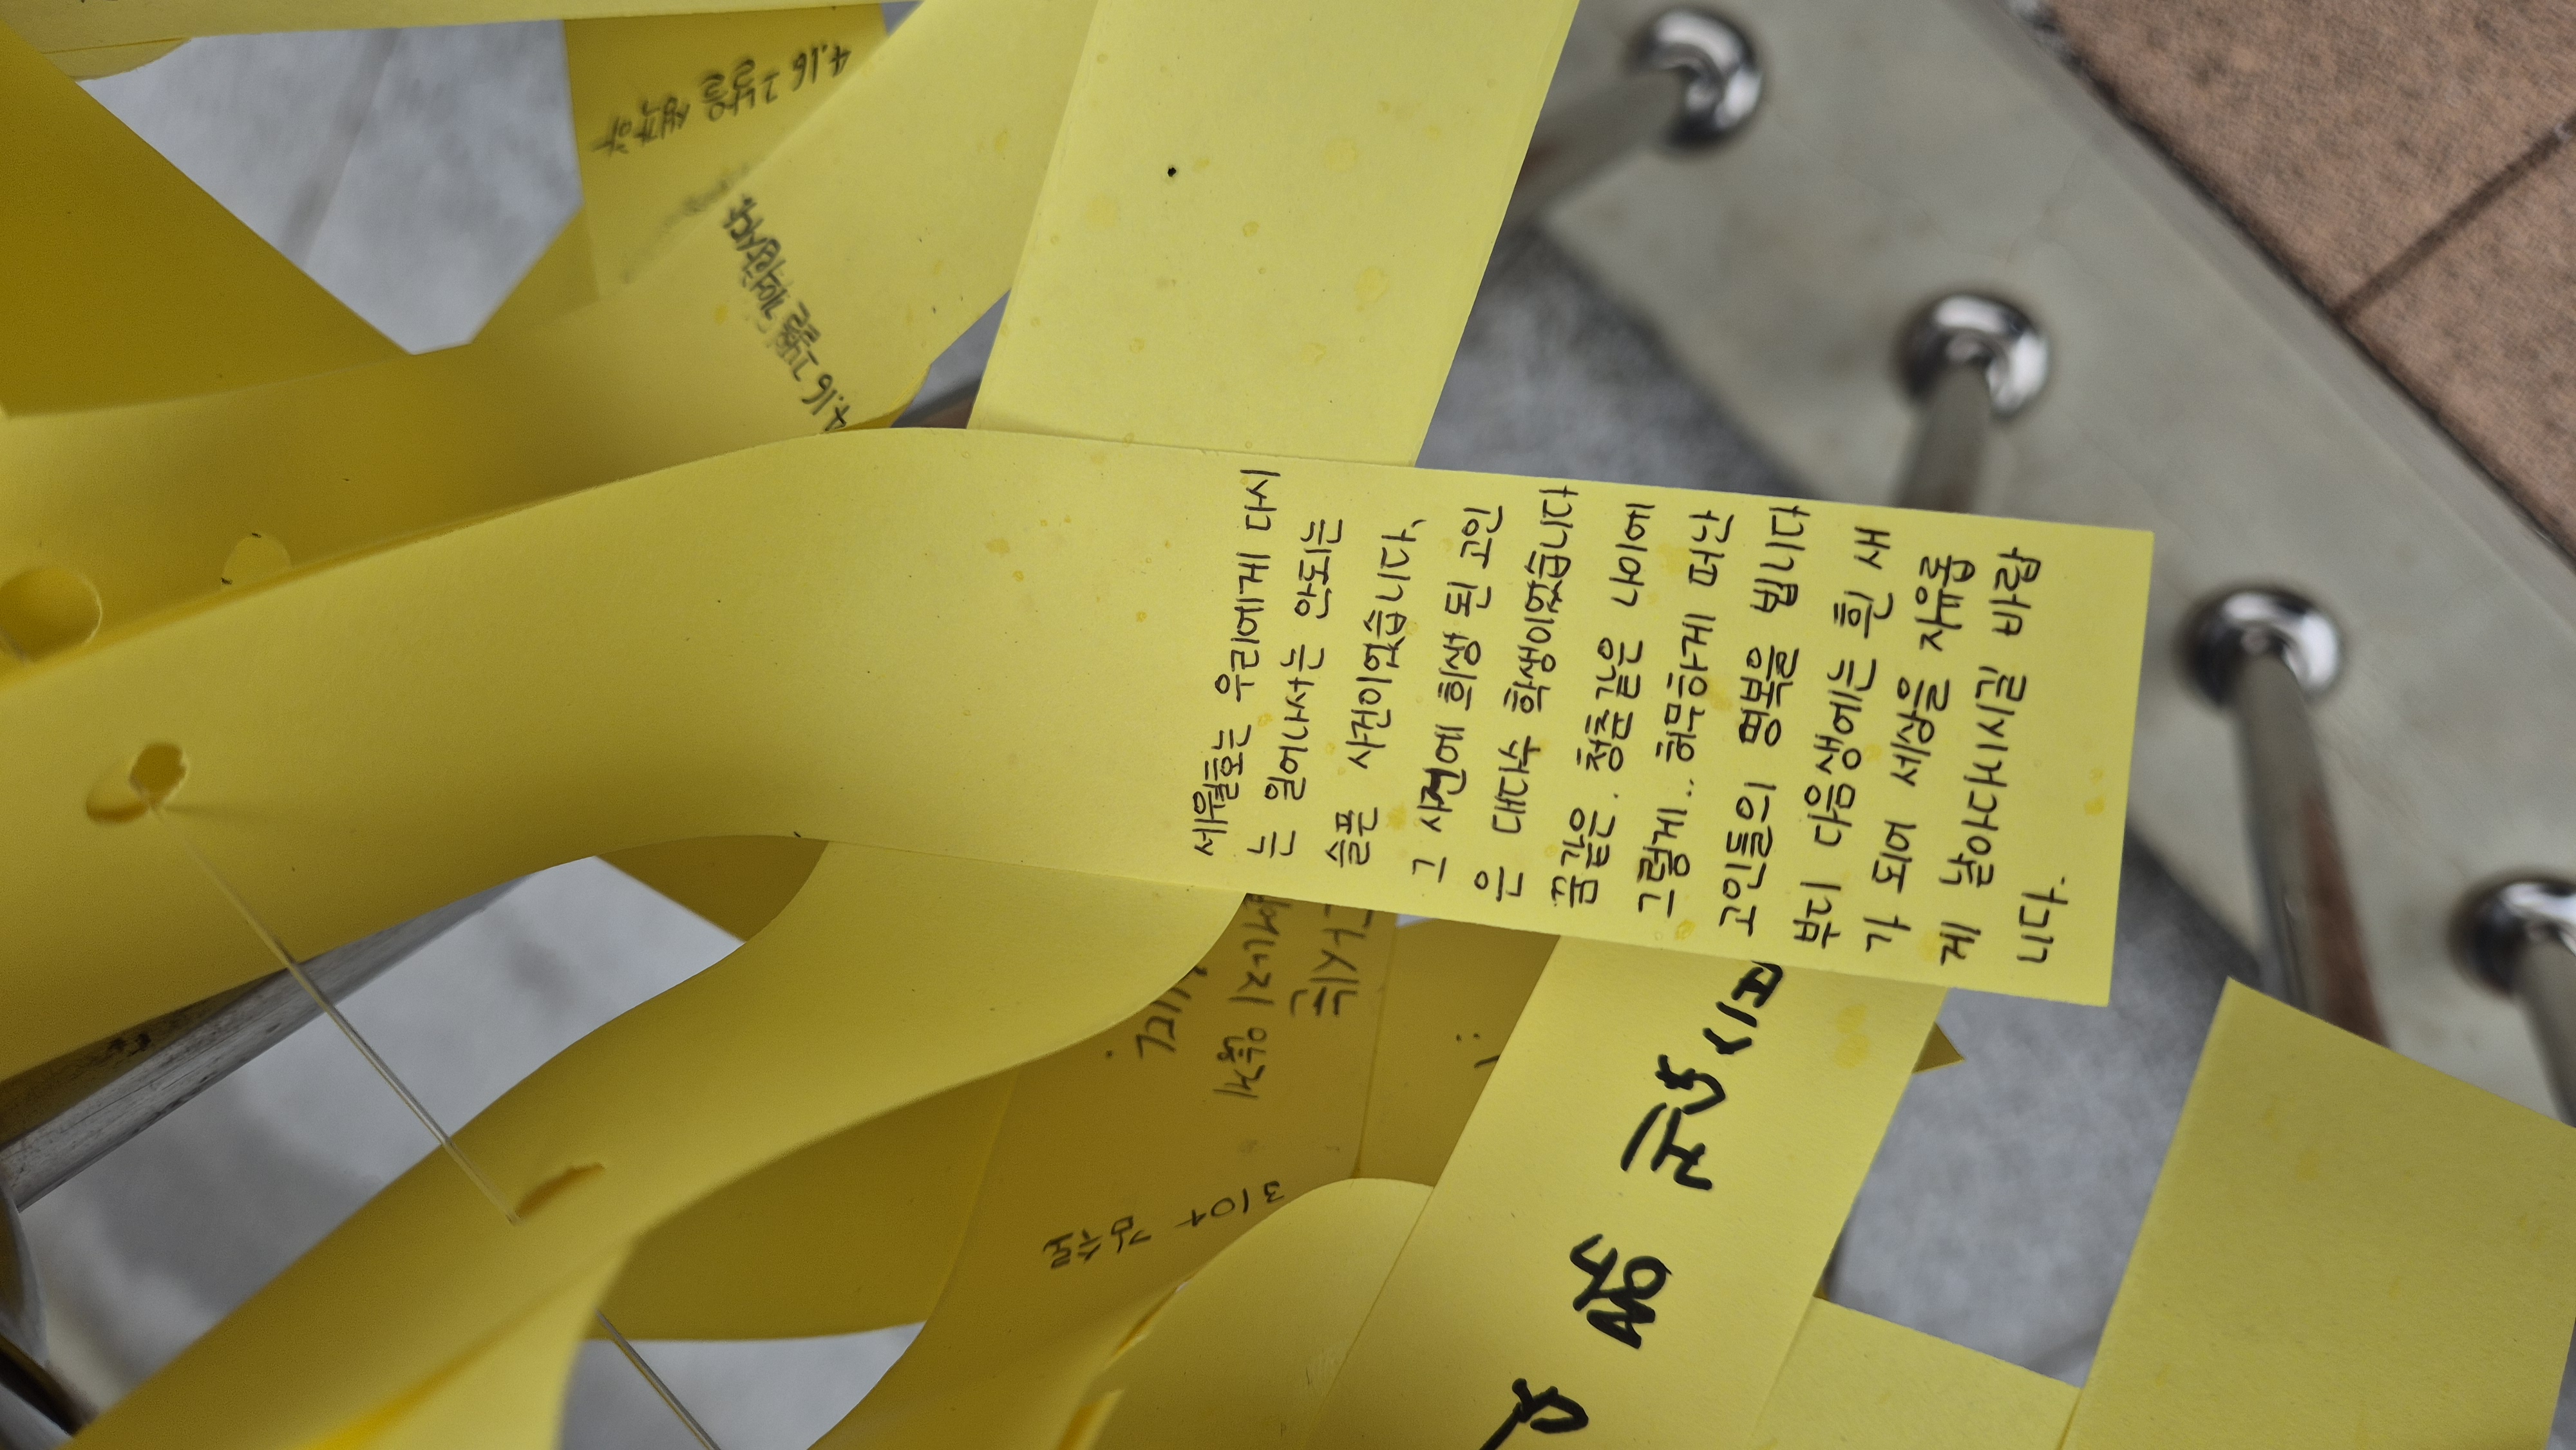 세월호는 우리에게 다시
는 일어나서는 안되는
슬픈 사건이었습니다.
그 사건에 희생된 고인
은 다대수 학생이었습니다
꿈같은 청춘같은 나이에
그렇게.. 허무하게 떠난
고인들의 명복을 빕니다
부디 다음생에는 흰 새
가 되어 세상을 자유롭
게 날아가시길 바랍
니다.
4.16 그날을 생각하
4.16 그날을
다시는
일어나지 않게
3104